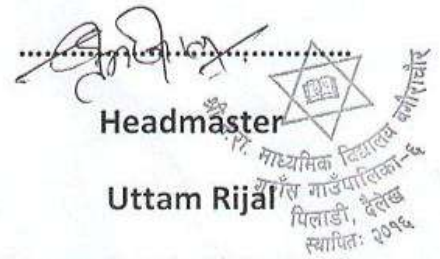 Headmaster
Uttam Rijal
श्री. रा. माध्यमिक विद्यालय बगौराचौर
गुराँस गाउँपालिका-६
पिलाडी, दैलेख
स्थापित: २०१६